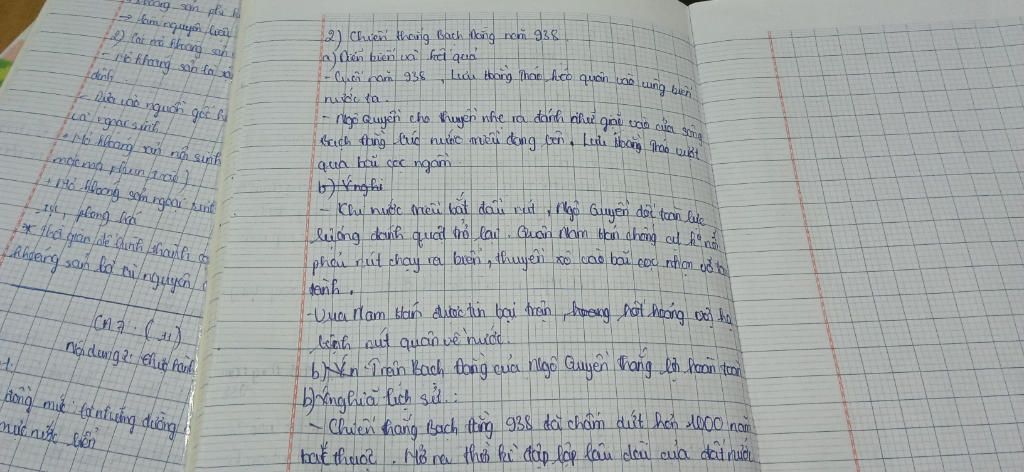 khoáng sản phi k
→ làm nguyên liệu
2) Các mỏ khoáng sản
- Mỏ khoáng sản là
định.
- Dựa vào nguồn gốc h
và ngoại sinh
+ Mỏ khoáng sản nội sinh
mắc ma phun trào)
+ Mỏ khoáng sản ngoại sinh
tụ, phong hoá
* Thời gian để hình thành
khoáng sản là tài nguyên
Nội dung 2: Thực hành
đồng mức là những đường
mực nước biển
2) Chiến thắng Bạch Đằng năm 938
a) Diễn biến và kết quả
- Cuối năm 938, Lưu Hoằng Tháo kéo quân vào vùng biển
nước ta.
- Ngô Quyền cho thuyền nhẹ ra đánh nhử giặc vào cửa sông
Bạch Đằng lúc nước triều dâng lên, Lưu Hoằng Tháo vượt
qua bãi cọc ngầm
b) Ý nghĩ
- Khi nước triều bắt đầu rút, Ngô Quyền dốc toàn lực
lượng đánh quật trở lại. Quân Nam Hán chống cự không nổi
phải rút chạy ra biển, thuyền xô vào bãi cọc nhọn vỡ
tành.
- Vua Nam Hán được tin bại trận, hốt hoảng hạ
lệnh rút quân về nước.
b) Trận Bạch Đằng của Ngô Quyền thắng lợi hoàn toàn
b) Ý nghĩa lịch sử:
- Chiến thắng Bạch Đằng 938 đã chấm dứt hơn 1000 năm
Bắt thuộc. Mở ra thời kì độc lập lâu dài của đất nước